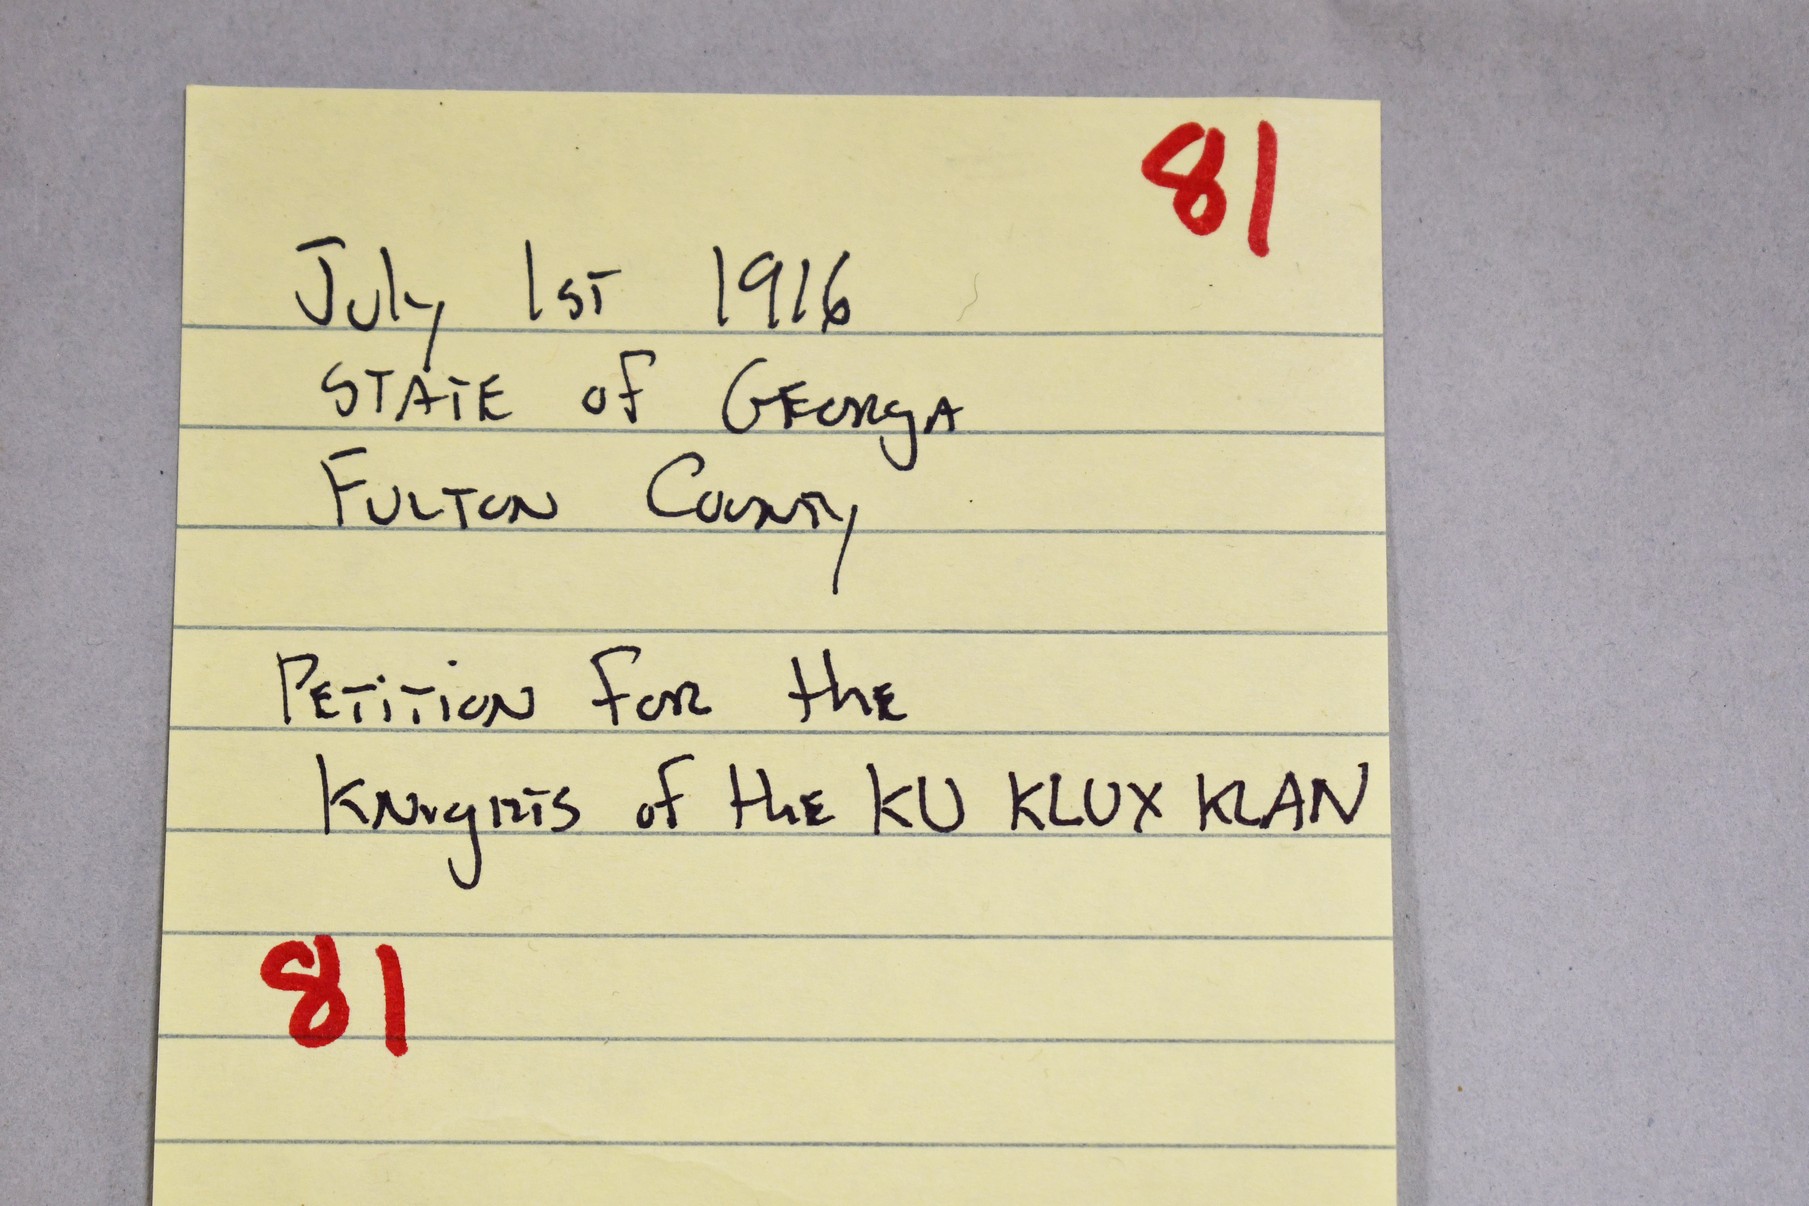 81
July 1st 1916
STATE of GEORGA
FULTON COUNTY
PETITION for the
KNIGHTS of the KU KLUX KLAN
81